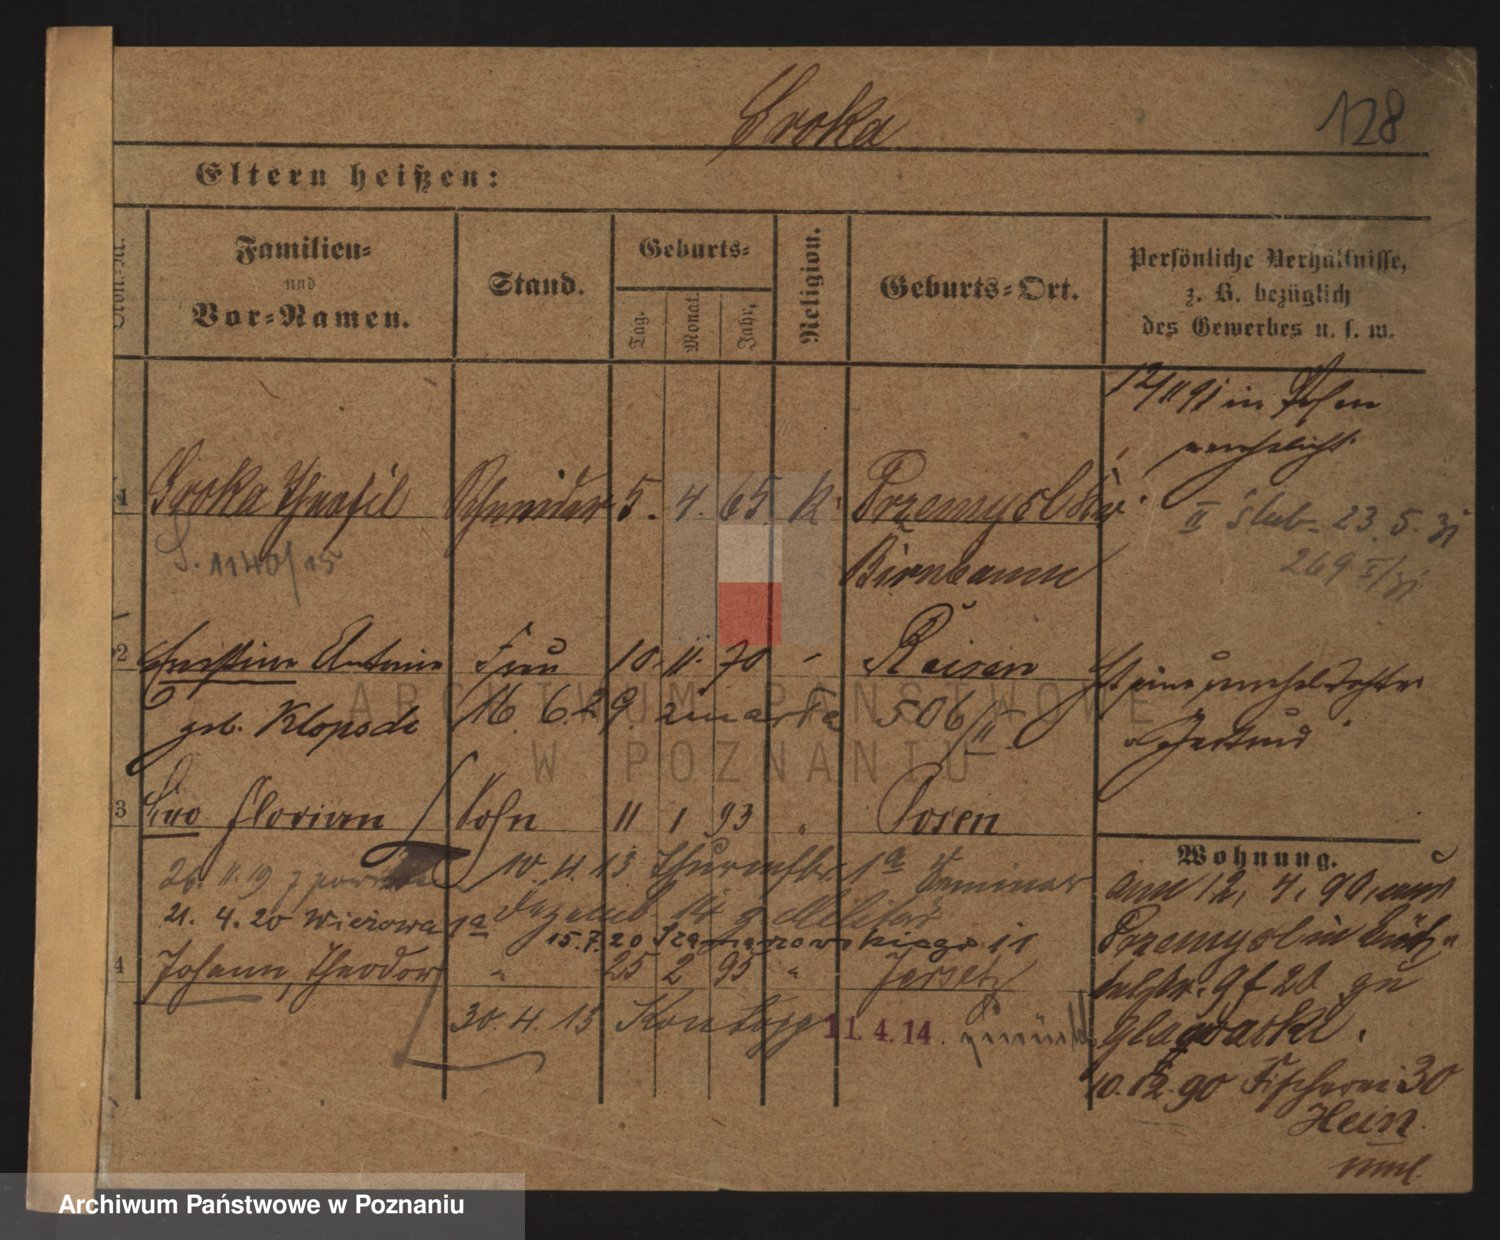 Sroka
128
Eltern heißen:
Familien-
und
Vor-Namen.
Stand.
Geburts-
Tag.
Monat.
Jahr.
Religion.
Geburts-Ort.
Persönliche Verhältnisse,
z. B. bezüglich
des Gewerbes u. s. w.
12/11 91 in Posen
verehelicht
1 Sroka Theofil Schneider 5. 4. 65 K Przemysl Kr.
II ślub. 23. 5. 31
269 I/31
S. 1140/15
Birnbaum
2 Christine Antonie Frau 10. 11. 70 Reisen
geb. Klopsch 16. 6. 29. zmarła 506/II
Gertrud
3 Leo Florian Sohn 11 1 93 " Posen
Wohnung.
26. 11. 19 z powr
10. 4. 13 Thurmstr. 1a Seminar
21. 4. 20 Wieżowa 1a
15. 7. 20 Szamarzewskiego 11
4 Johann, Theodor " 25 2 95 " Jersitz
30. 4. 13
11. 4. 14.
am 12. 4. 90, aus
Przemysl in
9 f 20 zu
Glowacki.
10. 12. 90 Fischerei 30
Hein
ARCHIWUM PAŃSTWOWE
W POZNANIU
Archiwum Państwowe w Poznaniu